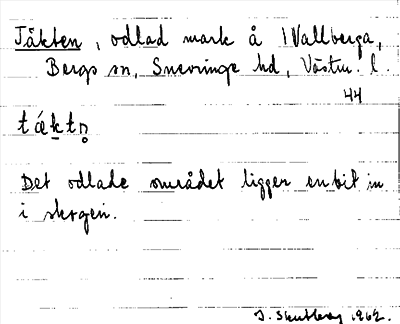 Täkten, odlad mark å Wallberga,
Bergs sn, Snevringe hd, Västm. l.
44
tǽktn̥
Det odlade området ligger en bit in
i skogen.
1962.